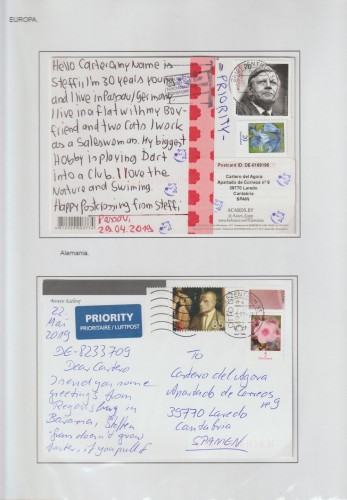 EUROPA.
Hello Carteramy Name is
Steffi, I'm 30 years young
and I live in Passau/Germany
I live in a flat with my Boy-
friend and two Cats. I work
as a Saleswoman. My biggest
Hobby is playing Dart
into a Club. I love the
Nature and Swiming.
Happy Postcrossing from Steffi
Passau,
29.04.2019
PRIORITY-
Postcard ID: DE-8169195
Cartero del Agora
Apartado de Correos nº 9
39770 Laredo
Cantabria
SPAIN
Alemania.
PRIORITY
PRIORITAIRE / LUFTPOST
22.
Mai
2019
DE-8233709
Dear Cartero
I send you some
greetings from
Regensburg in
Bavaria, Steffen
grow
if you pull it
To
Cartero del Agora
Apartado de Correos
nº 9
39770 Laredo
Cantabria
SPANIEN